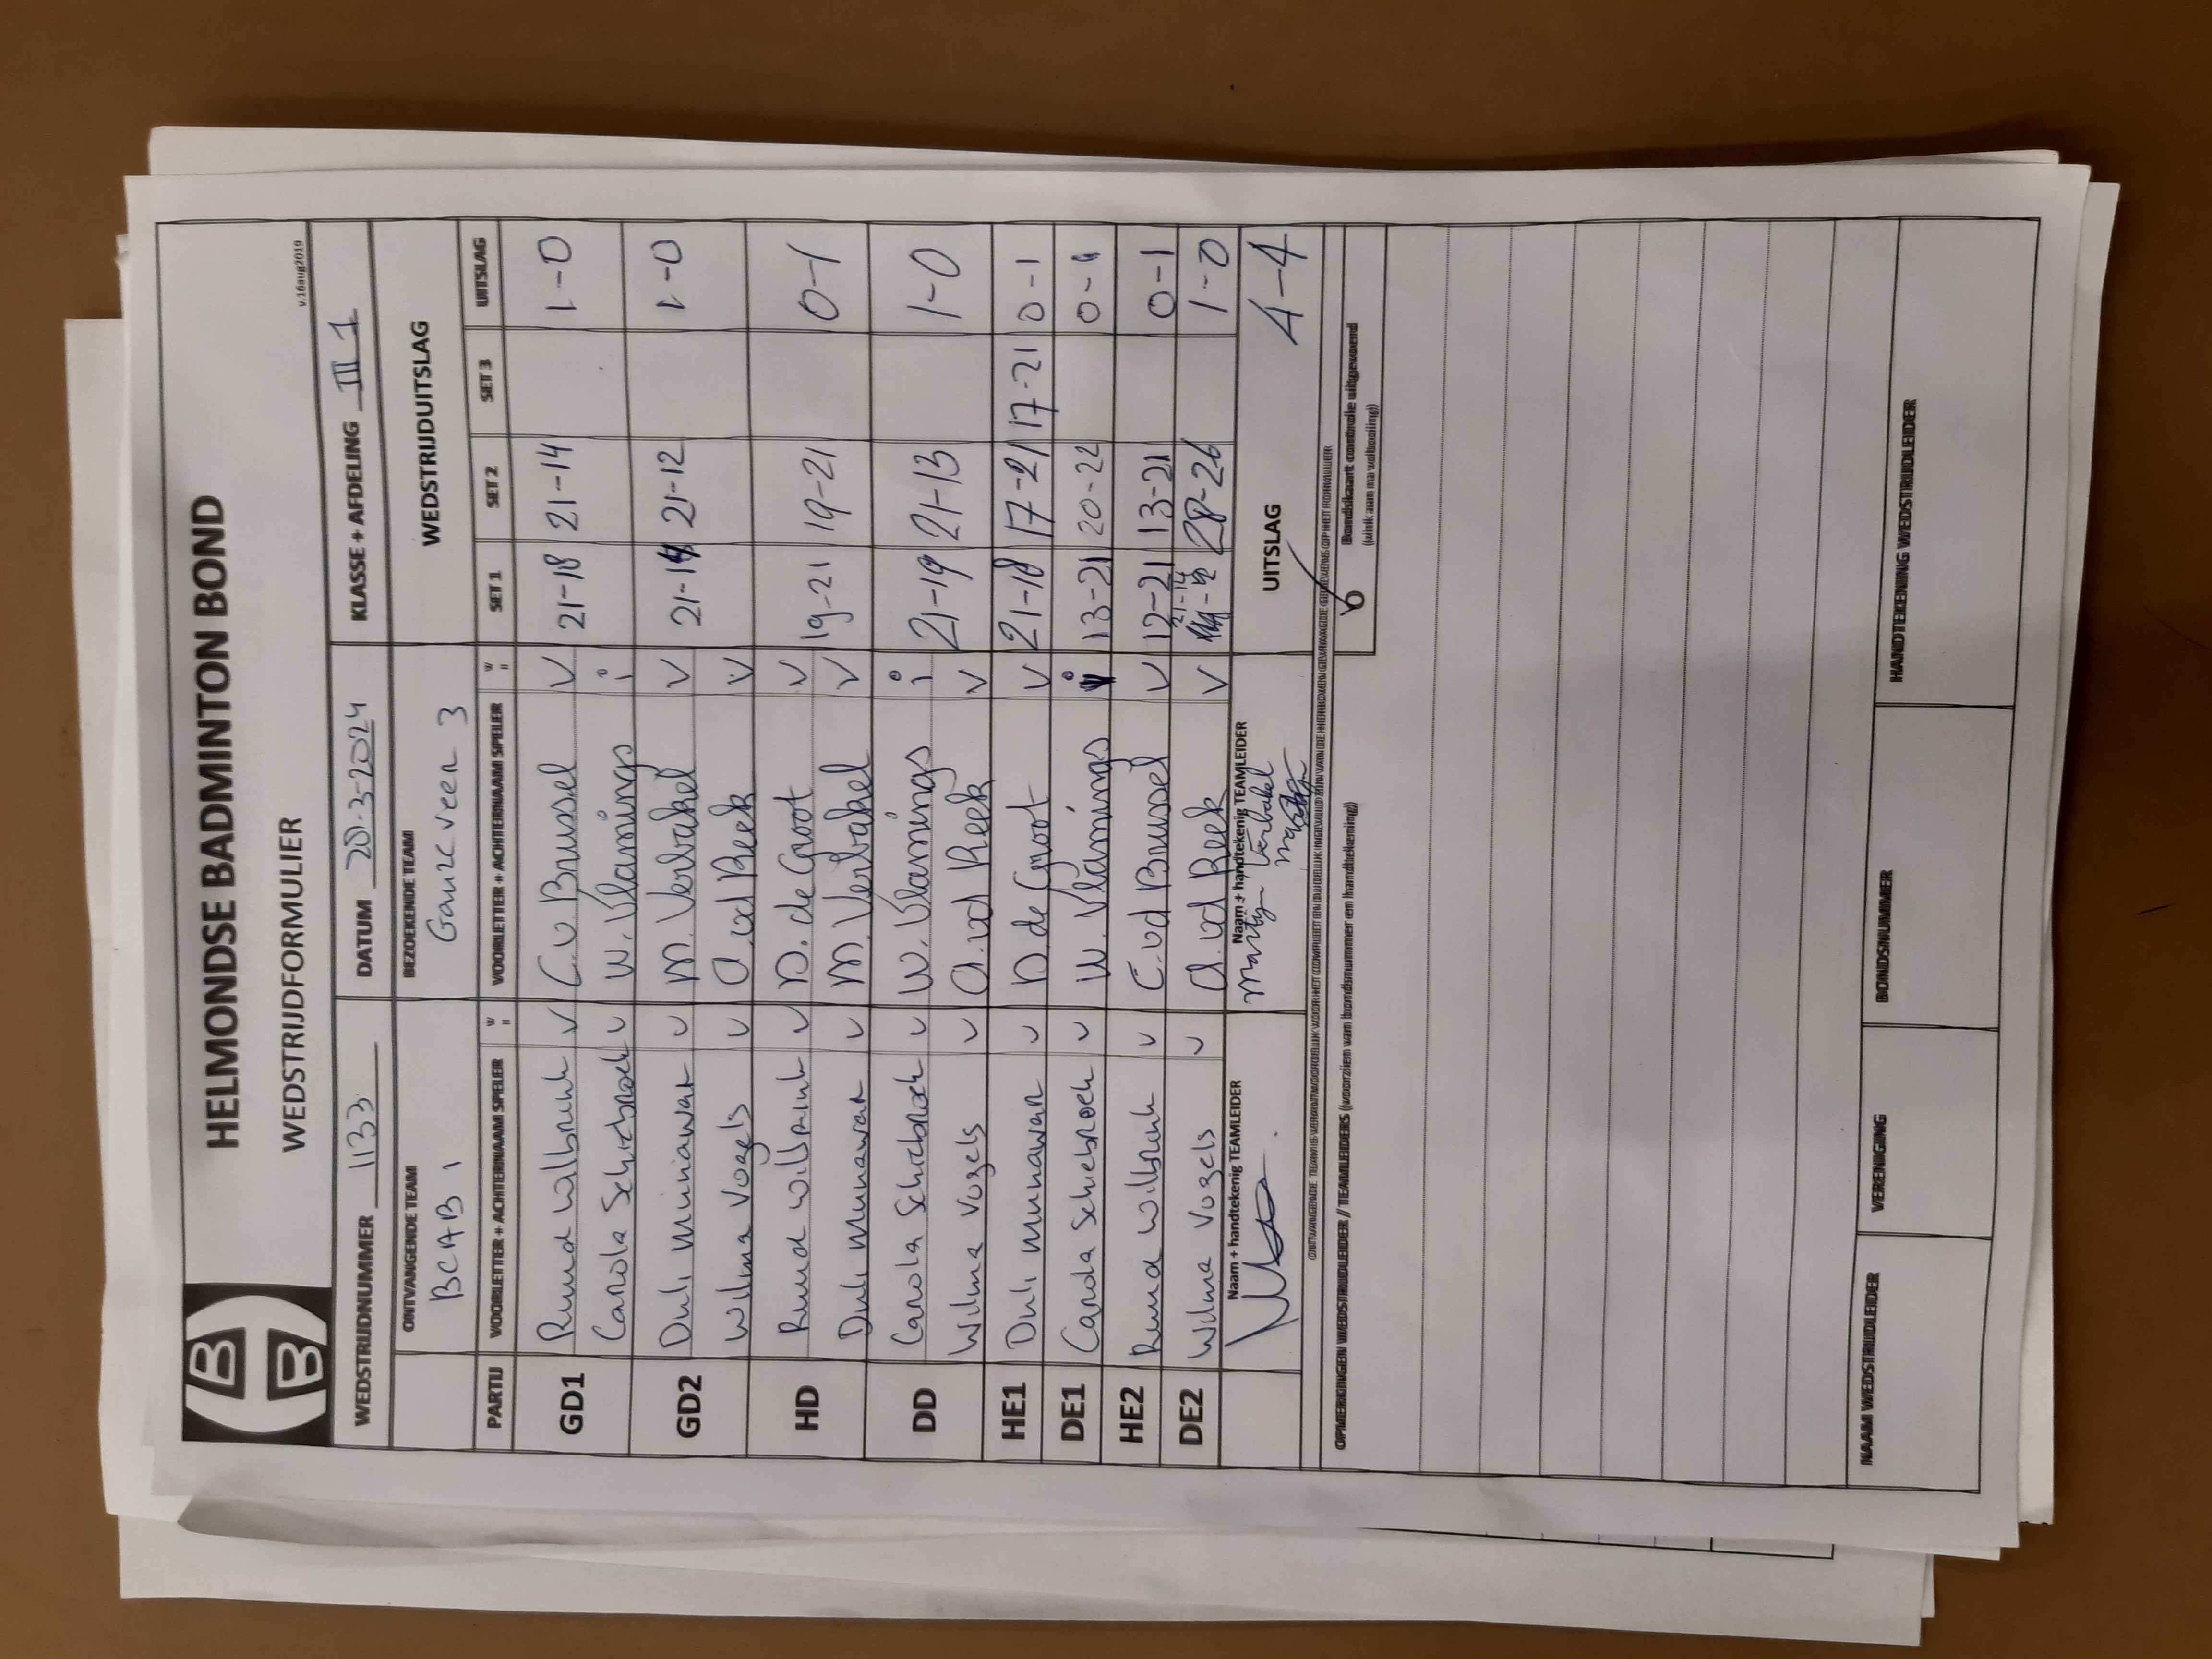 HELMONDSE BADMINTON BOND
WEDSTRIJDFORMULIER
v.16aug2019
WEDSTRIJDNUMMER 1133 DATUM 20-3-2024 KLASSE + AFDELING III 1
ONTVANGENDE TEAM BEZOEKENDE TEAM WEDSTRIJDUITSLAG
BCAB 1 Ganzeveer 3
PARTIJ VOORLETTER + ACHTERNAAM SPELER VOORLETTER + ACHTERNAAM SPELER SET 1 SET 2 SET 3 UITSLAG
GD1 Ruud Wilbrink v C. v Brussel v 21-18 21-14 1-0
Carola Schiebroek v W. Vlamings i
GD2 Duli Munawar v M. Verbakel v 21-14 21-12 1-0
Wilma Vogels v A. vd Beek v
HD Ruud Wilbrink v D. de Groot v 19-21 19-21 0-1
Duli Munawar v M. Verbakel v
DD Carola Schiebroek v W. Vlamings i 21-19 21-13 1-0
Wilma Vogels v A. vd Beek v
HE1 Duli Munawar v D. de Groot v 21-18 17-21 17-21 0-1
DE1 Carola Schiebroek v W. Vlamings i 13-21 20-22 0-1
HE2 Ruud Wilbrink v C. vd Brussel v 12-21 13-21 0-1
DE2 Wilma Vogels v A. vd Beek v 21-14 28-26 1-0
Naam + handtekenig TEAMLEIDER Naam + handtekenig TEAMLEIDER UITSLAG 4-4
Martijn Verbakel
ONTVANGENDE TEAM IS VERANTWOORDELIJK VOOR HET COMPLEET EN DUIDELIJK INGEVULD ZIJN VAN DE HIERBOVEN GEVRAAGDE GEGEVENS OP HET FORMULIER
Bondskaart controle uitgevoerd
(vink aan na voltooiing)
OPMERKINGEN WEDSTRIJDLEIDER / TEAMLEIDERS (voorzien van bondsnummer en handtekening)
NAAM WEDSTRIJDLEIDER VERENIGING BONDSNUMMER HANDTEKENING WEDSTRIJDLEIDER